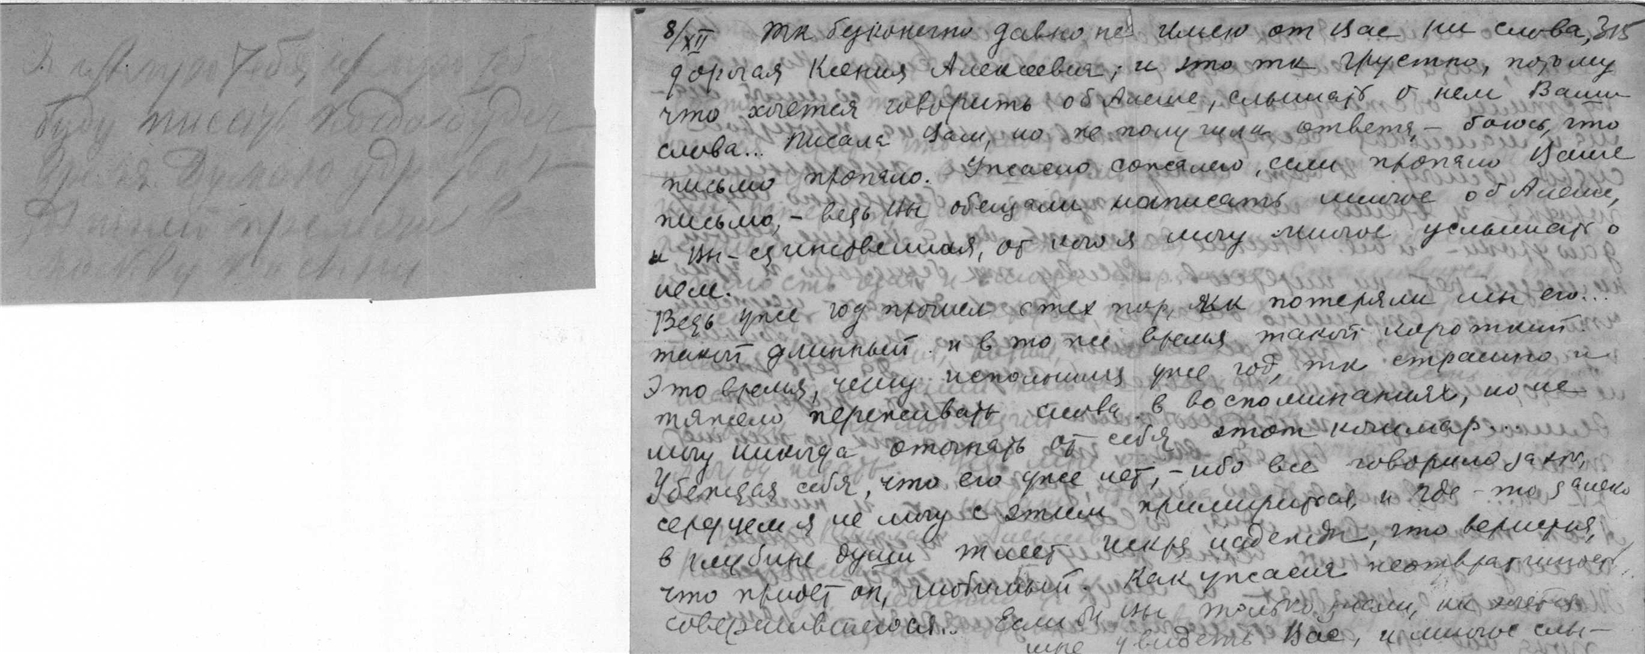 буду писать
8/XII Так бесконечно давно не имею от Вас ни слова, 315
дорогая Ксения Алексеевна, и это так грустно, потому
что хочется говорить об Алеше, слышать о нем Ваши
слова... Писала Вам, но не получила ответа, – боюсь, что
письмо пропало. Ужасно сожалею, если пропало Ваше
письмо, – ведь Вы обещали написать многое об Алеше,
и Вы – единственная, от кого я могу многое услышать о
нем.
Ведь уже год прошел с тех пор, как потеряли мы его...
такой длинный и в то же время такой короткий.
Это время, чему исполнился уже год, так страшно и
тяжело переживать снова в воспоминаниях, но не
могу никогда отогнать от себя этот кошмар...
Убеждая себя, что его уже нет, – ибо все говорило за это,
сердцем я не могу с этим примириться, и где-то далеко
в глубине души тлеет искра надежды, что вернется,
что придет он, любимый. Как ужасна неотвратимость
совершившегося... Если бы Вы только знали, как хочется
мне увидеть Вас, и многое слы-